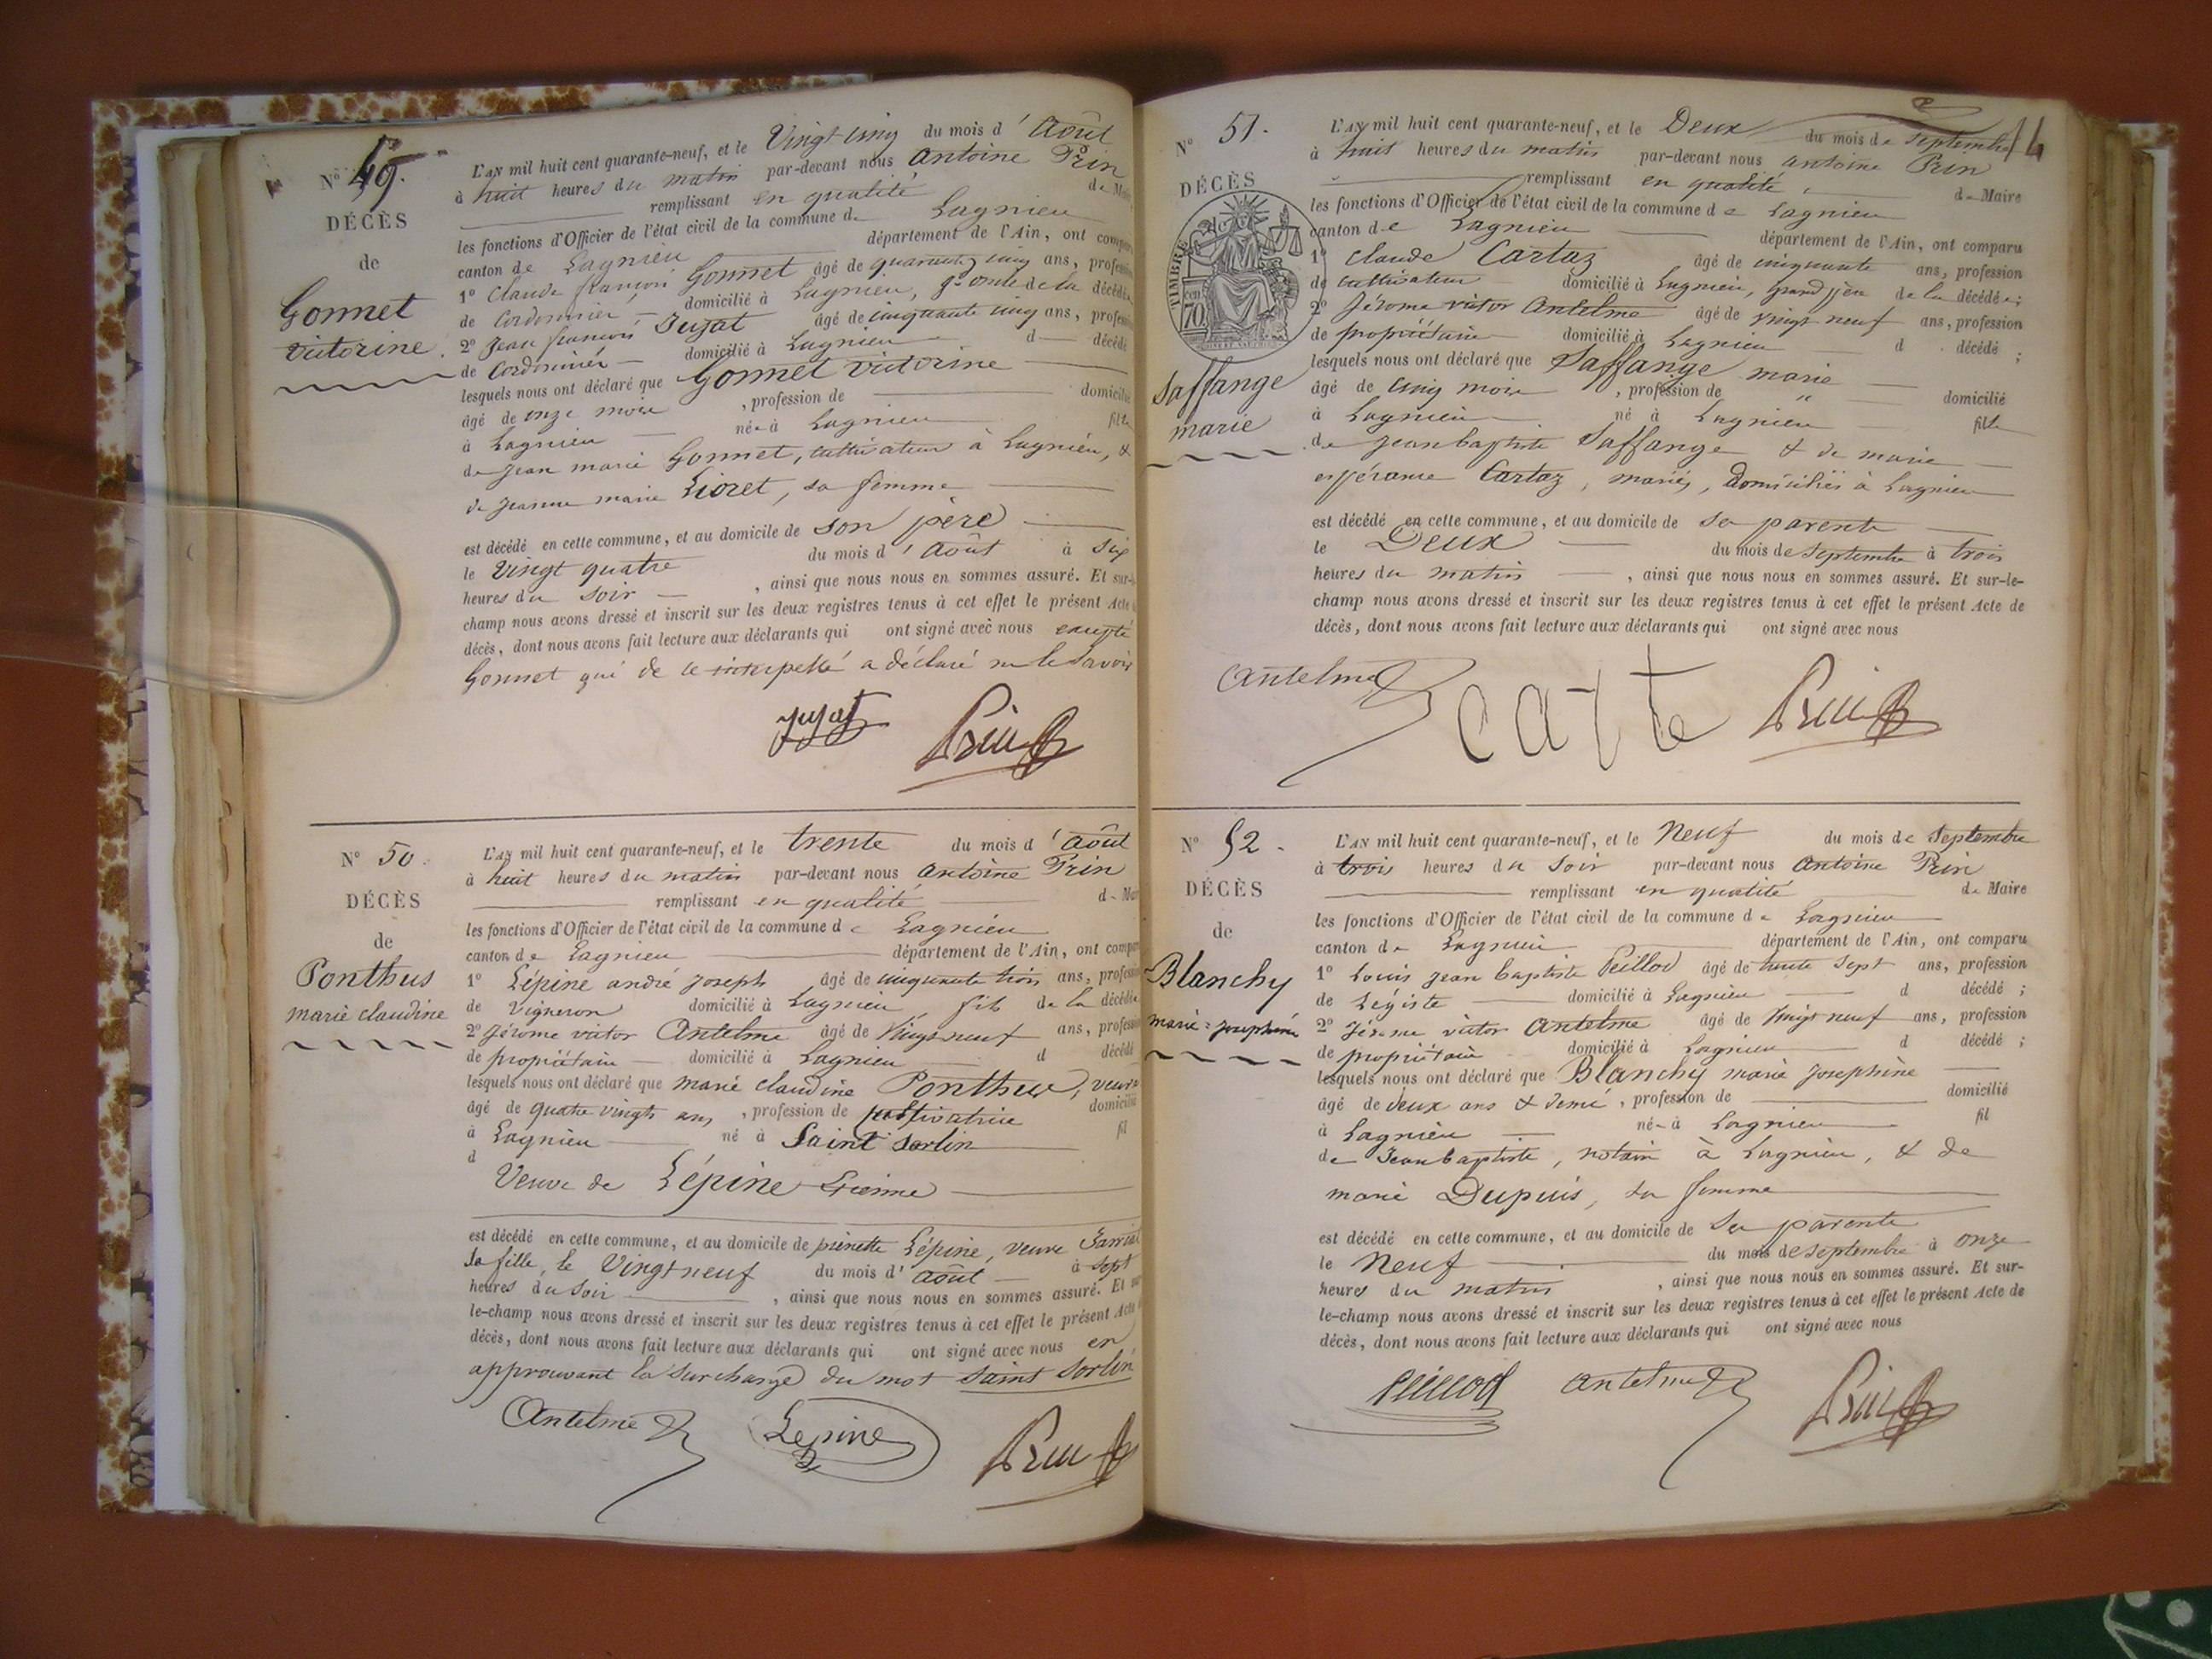 N° 49.
DÉCÈS
de
Gonnet
Victorine
L'AN mil huit cent quarante-neuf, et le Vingt cinq du mois d' Août
à huit heures du matin par-devant nous Antoine Prin
remplissant en qualité de
les fonctions d'Officier de l'état civil de la commune de Lagnieu
canton de Lagnieu département de l'Ain, ont
1° Claude françois Gonnet âgé de quarante cinq ans,
de Cordonnier domicilié à Lagnieu, gd oncle de la décédée
2° Jean françois Jujat âgé de cinquante cinq ans,
de Cordonnier domicilié à Lagnieu d décédé
lesquels nous ont déclaré que Gonnet Victorine
âgé de onze mois , profession de domicilié
à Lagnieu née à Lagnieu fille
de Jean marie Gonnet, cultivateur à Lagnieu, &
de Jeanne marie Lioret, sa femme
est décédé en cette commune, et au domicile de son père
le Vingt quatre du mois d' Août à six
heures du soir , ainsi que nous nous en sommes assuré. Et sur-le-
champ nous avons dressé et inscrit sur les deux registres tenus à cet effet le présent Acte
décès, dont nous avons fait lecture aux déclarants qui ont signé avec nous excepté
Gonnet qui de ce interpellé a déclaré ne le savoir
Jujat Prin
N° 50.
DÉCÈS
de
Ponthus
marie claudine
L'AN mil huit cent quarante-neuf, et le trente du mois d' Août
à huit heures du matin par-devant nous Antoine Prin
remplissant en qualité de
les fonctions d'Officier de l'état civil de la commune de Lagnieu
canton de Lagnieu département de l'Ain, ont
1° Lépine andré joseph âgé de cinquante trois ans,
de Vigneron domicilié à Lagnieu, fils de la décédée
2° Jérome victor Antelme âgé de Vingt neuf ans,
de propriétaire domicilié à Lagnieu d décédé
lesquels nous ont déclaré que marie claudine Ponthus, veuve
âgé de quatre vingts ans, profession de cultivatrice domicilié
à Lagnieu né à Saint Sorlin fil
d
Veuve de Lépine Etienne
est décédé en cette commune, et au domicile de pierrette Lépine, veuve
sa fille, le Vingt neuf du mois d' Août à sept
heures du soir , ainsi que nous nous en sommes assuré. Et sur-
le-champ nous avons dressé et inscrit sur les deux registres tenus à cet effet le présent Acte
décès, dont nous avons fait lecture aux déclarants qui ont signé avec nous en
approuvant la surcharge du mot Saint Sorlin
Antelme Lepine Prin
14
N° 51.
DÉCÈS
TIMBRE
70
Saffange
marie
L'AN mil huit cent quarante-neuf, et le Deux du mois de Septembre
à huit heures du matin par-devant nous Antoine Prin
remplissant en qualité de Maire
les fonctions d'Officier de l'état civil de la commune de Lagnieu
canton de Lagnieu département de l'Ain, ont comparu
1° Claude Cartaz âgé de cinquante ans, profession
de cultivateur domicilié à Lagnieu, Grand père de la décédée;
2° Jérome victor Antelme âgé de vingt neuf ans, profession
de propriétaire domicilié à Lagnieu d décédé ;
lesquels nous ont déclaré que Saffange marie
âgé de cinq mois , profession de " domicilié
à Lagnieu né à Lagnieu fille
de Jean baptiste Saffange & de marie
espérance Cartaz, mariés, Domiciliés à Lagnieu
est décédé en cette commune, et au domicile de ses parents
le Deux du mois de Septembre à trois
heures du matin , ainsi que nous nous en sommes assuré. Et sur-le-
champ nous avons dressé et inscrit sur les deux registres tenus à cet effet le présent Acte de
décès, dont nous avons fait lecture aux déclarants qui ont signé avec nous
Antelme Prin
N° 52.
DÉCÈS
de
Blanchy
marie=josephine
L'AN mil huit cent quarante-neuf, et le Neuf du mois de Septembre
à trois heures du Soir par-devant nous Antoine Prin
remplissant en qualité de Maire
les fonctions d'Officier de l'état civil de la commune de Lagnieu
canton de Lagnieu département de l'Ain, ont comparu
1° Louis jean baptiste Peillod âgé de trente sept ans, profession
de Légiste domicilié à Lagnieu d décédé ;
2° Jérome victor Antelme âgé de Vingt neuf ans, profession
de propriétaire domicilié à Lagnieu d décédé ;
lesquels nous ont déclaré que Blanchy marie Josephine
âgé de deux ans & demi , profession de domicilié
à Lagnieu née à Lagnieu fil
de Jean baptiste, notaire à Lagnieu, & de
marie Dupuis, sa femme
est décédé en cette commune, et au domicile de ses parents
le Neuf du mois de Septembre à onze
heures du matin , ainsi que nous nous en sommes assuré. Et sur-
le-champ nous avons dressé et inscrit sur les deux registres tenus à cet effet le présent Acte de
décès, dont nous avons fait lecture aux déclarants qui ont signé avec nous
Peillod Antelme Prin